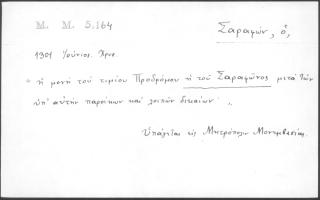 Μ. Μ. 5.164
Σαραφών, ὁ,
1301 Ἰούνιος. Χρυσ.
" ἡ μονὴ τοῦ τιμίου Προδρόμου ἡ τοῦ Σαραφῶνος μετὰ τῶν
ὑπ' αὐτὴν παροίκων καὶ λοιπῶν δικαίων " ,
Ὑπάγεται εἰς Μητρόπολιν Μονεμβασίας.